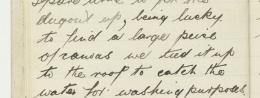 dugout up, being lucky
to find a large peice
of canvas we tied it up
to the roof to catch the
water for washing purposes.